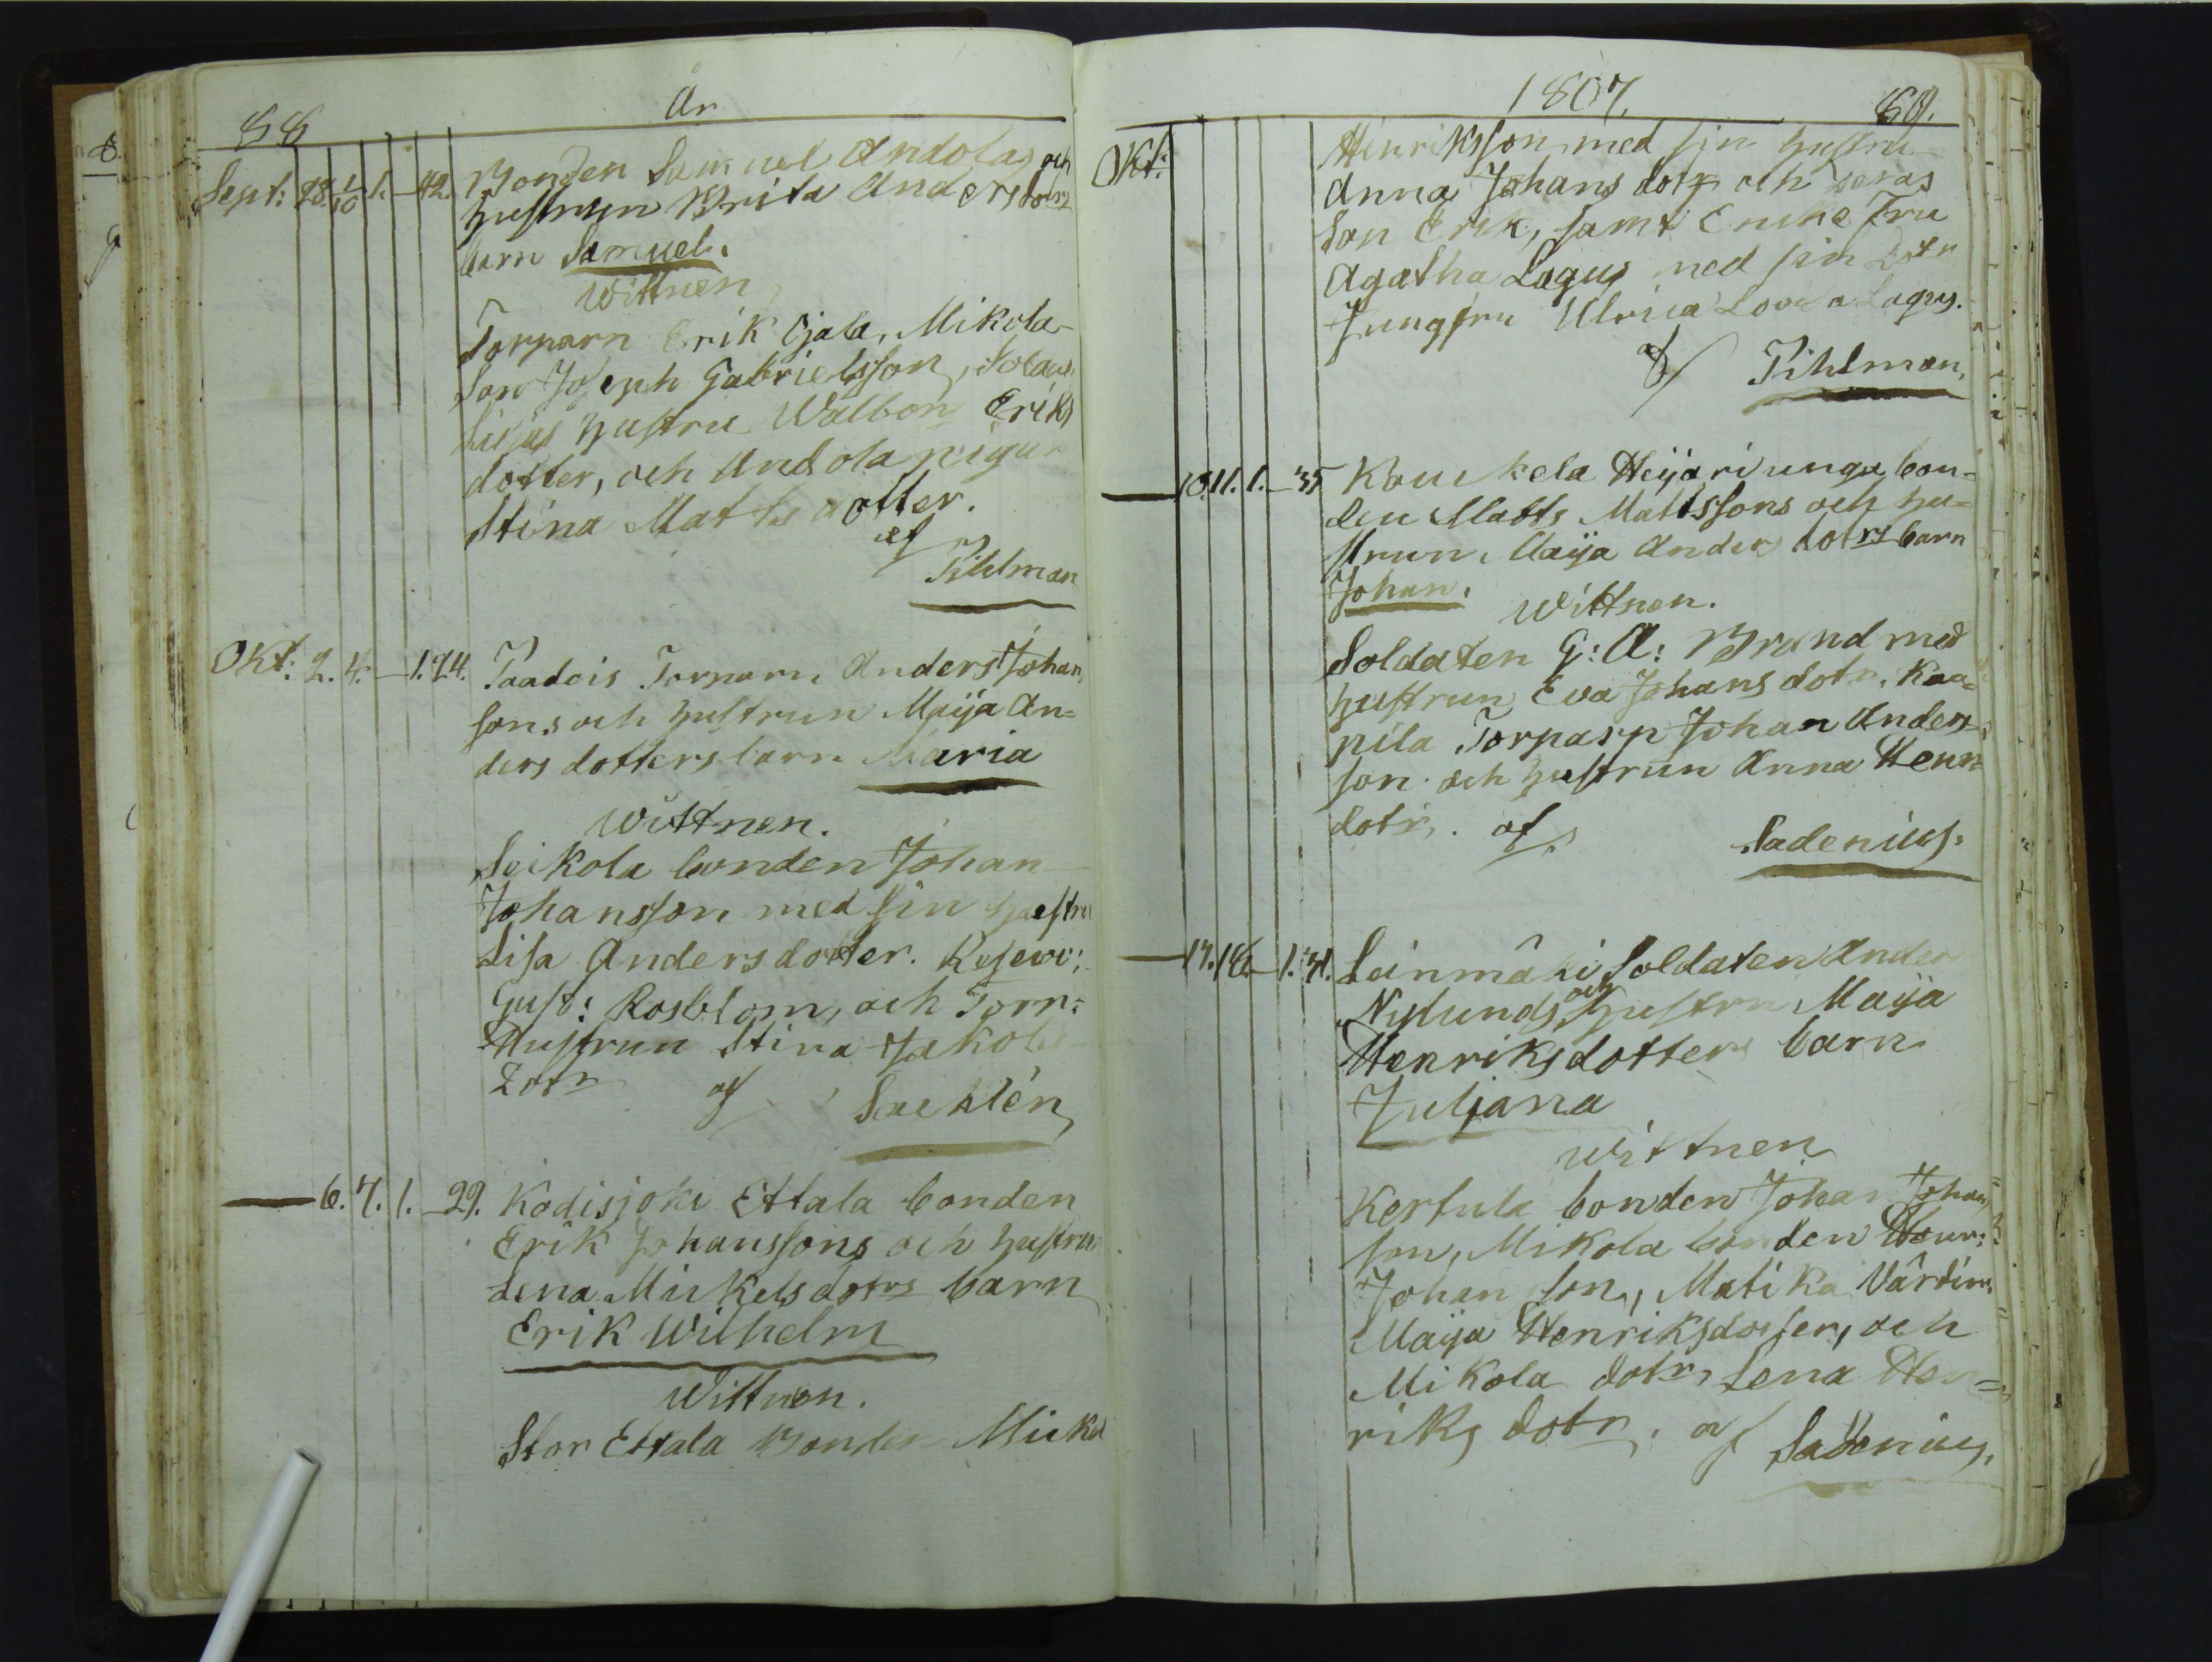 88 År
Sept: 28. 1/10 1. — 42. Bonden Samuel Andolas och
hustrun Brita Andersdotrs
barn Samuel.
Wittnen
Torparn Erik Ojala, Mikola
Son Joseph Gabrielsson, Soldat
hustru Walbor Eriks
dotter, och Andola pigan
Stina Matts dotter.
af
Pihlman
Okt: 2. 4. — 1. 24. Paadois Torparn Anders Johan
sons och hustrun Maija An=
ders dotters barn Maria
Wittnen.
Seikola bonden Johan
Johansson med sin hustru
Lisa Andersdotter. Reserv:
Gust: Rosblom, och Torp:
Hustrun Stina Jakobs
Dotr af Sacklén
— 6. 7. 1. — 29. Kodisjoki Ettala bonden
Erik Johanssons och hustrun
Lena Mickelsdotrs barn
Erik Wilhelm
Wittnen.
Stor Ettala Bonden Mickel
1807. 89.
Okt: Henriksson med sin hustru
Anna Johans dotr och deras
Son Erik, samt Enke Fru
Agatha Lagus med sin Dotr
Jungfru Ulrica Lovisa Lagus.
af Pihlman
— 10. 11. 1. — 35 Kaukela Heijari unga bon=
den Matts Mattssons och hu=
strun Maija Anders dotrs barn
Johan.
Wittnen.
Soldaten G: A: Brand med
hustrun Eva Johans dotr. Kaa=
pila Torparn Johan Anders=
son och hustrun Anna Henr:
dotr. af Sadenius.
— 17. 18. — 1. 31. Leinmäki Soldaten Anders
Nylunds och hustru Maija
Henriksdotters barn
Juljana
Wittnen
Kertula bonden Johan Johan=
son, Mikola bonden Henr:
Johan son, Matika Värdin:
Maija Henriksdotter, och
Mikola dotr Lena Hen=
riks dotr. af Sadenius.